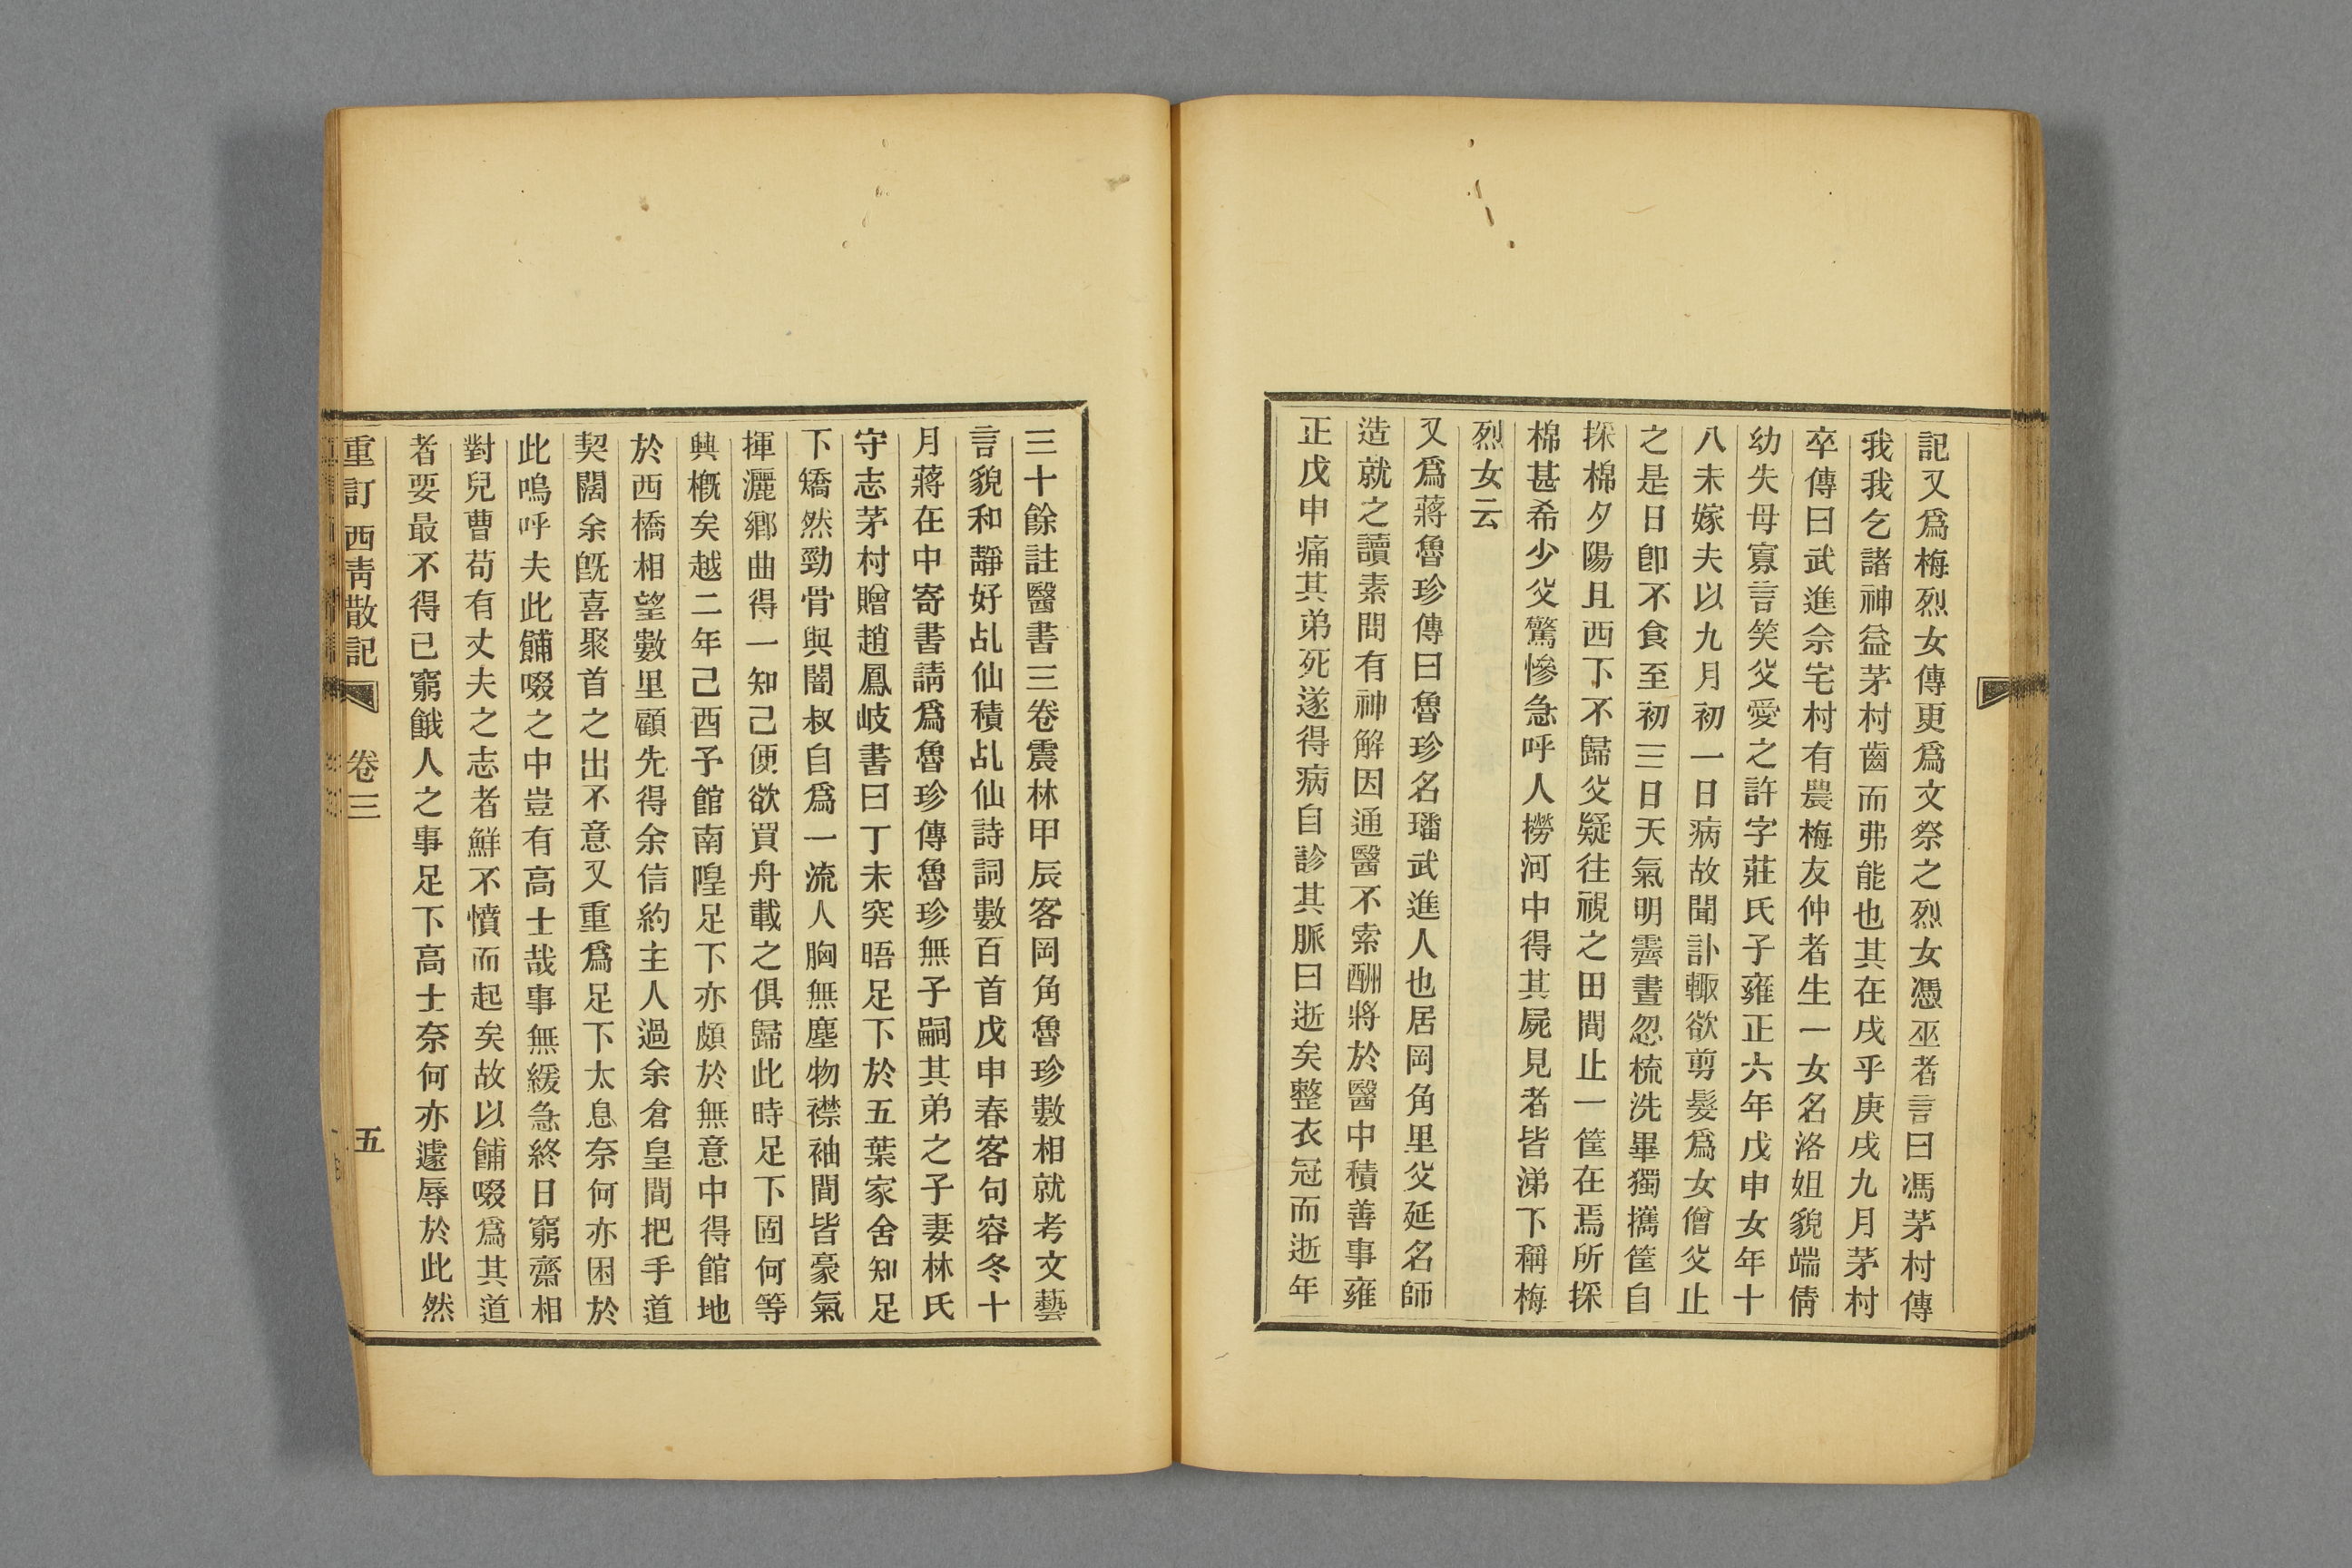 記又爲梅烈女傳更爲文祭之烈女憑巫者言曰馮茅村傳
我我乞諸神益茅村齒而弗能也其在戌乎庚戌九月茅村
卒傳曰武進余宅村有農梅友仲者生一女名洛姐貌端倩
幼失母寡言笑父愛之許字莊氏子雍正六年戊申女年十
八未嫁夫以九月初一日病故聞訃輙欲剪髮爲女僧父止
之是日卽不食至初三日天氣明霽晝忽梳洗畢獨攜筐自
採棉夕陽且西下不歸父疑往視之田間止一筐在焉所採
棉甚希少父驚慘急呼人撈河中得其屍見者皆涕下稱梅
烈女云
又爲蔣魯珍傳曰魯珍名璠武進人也居岡角里父延名師
造就之讀素問有神解因通醫不索酬將於醫中積善事雍
正戊申痛其弟死遂得病自診其脈曰逝矣整衣冠而逝年
三十餘註醫書三卷震林甲辰客岡角魯珍數相就考文藝
言貌和靜好乩仙積乩仙詩詞數百首戊申春客句容冬十
月蔣在中寄書請爲魯珍傳魯珍無子嗣其弟之子妻林氏
守志茅村贈趙鳳岐書曰丁未突晤足下於五葉家舍知足
下矯然勁骨與闇叔自爲一流人胸無塵物襟袖間皆豪氣
揮灑鄉曲得一知己便欲買舟載之俱歸此時足下固何等
興槪矣越二年己酉予館南隍足下亦頗於無意中得館地
於西橋相望數里顧先得余信約主人過余倉皇間把手道
契闊余旣喜聚首之出不意又重爲足下太息奈何亦困於
此嗚呼夫此餔啜之中豈有高士哉事無緩急終日窮齋相
對兒曹苟有丈夫之志者鮮不憤而起矣故以餔啜爲其道
者要最不得已窮餓人之事足下高士奈何亦遽辱於此然
重訂西靑散記 卷三 五